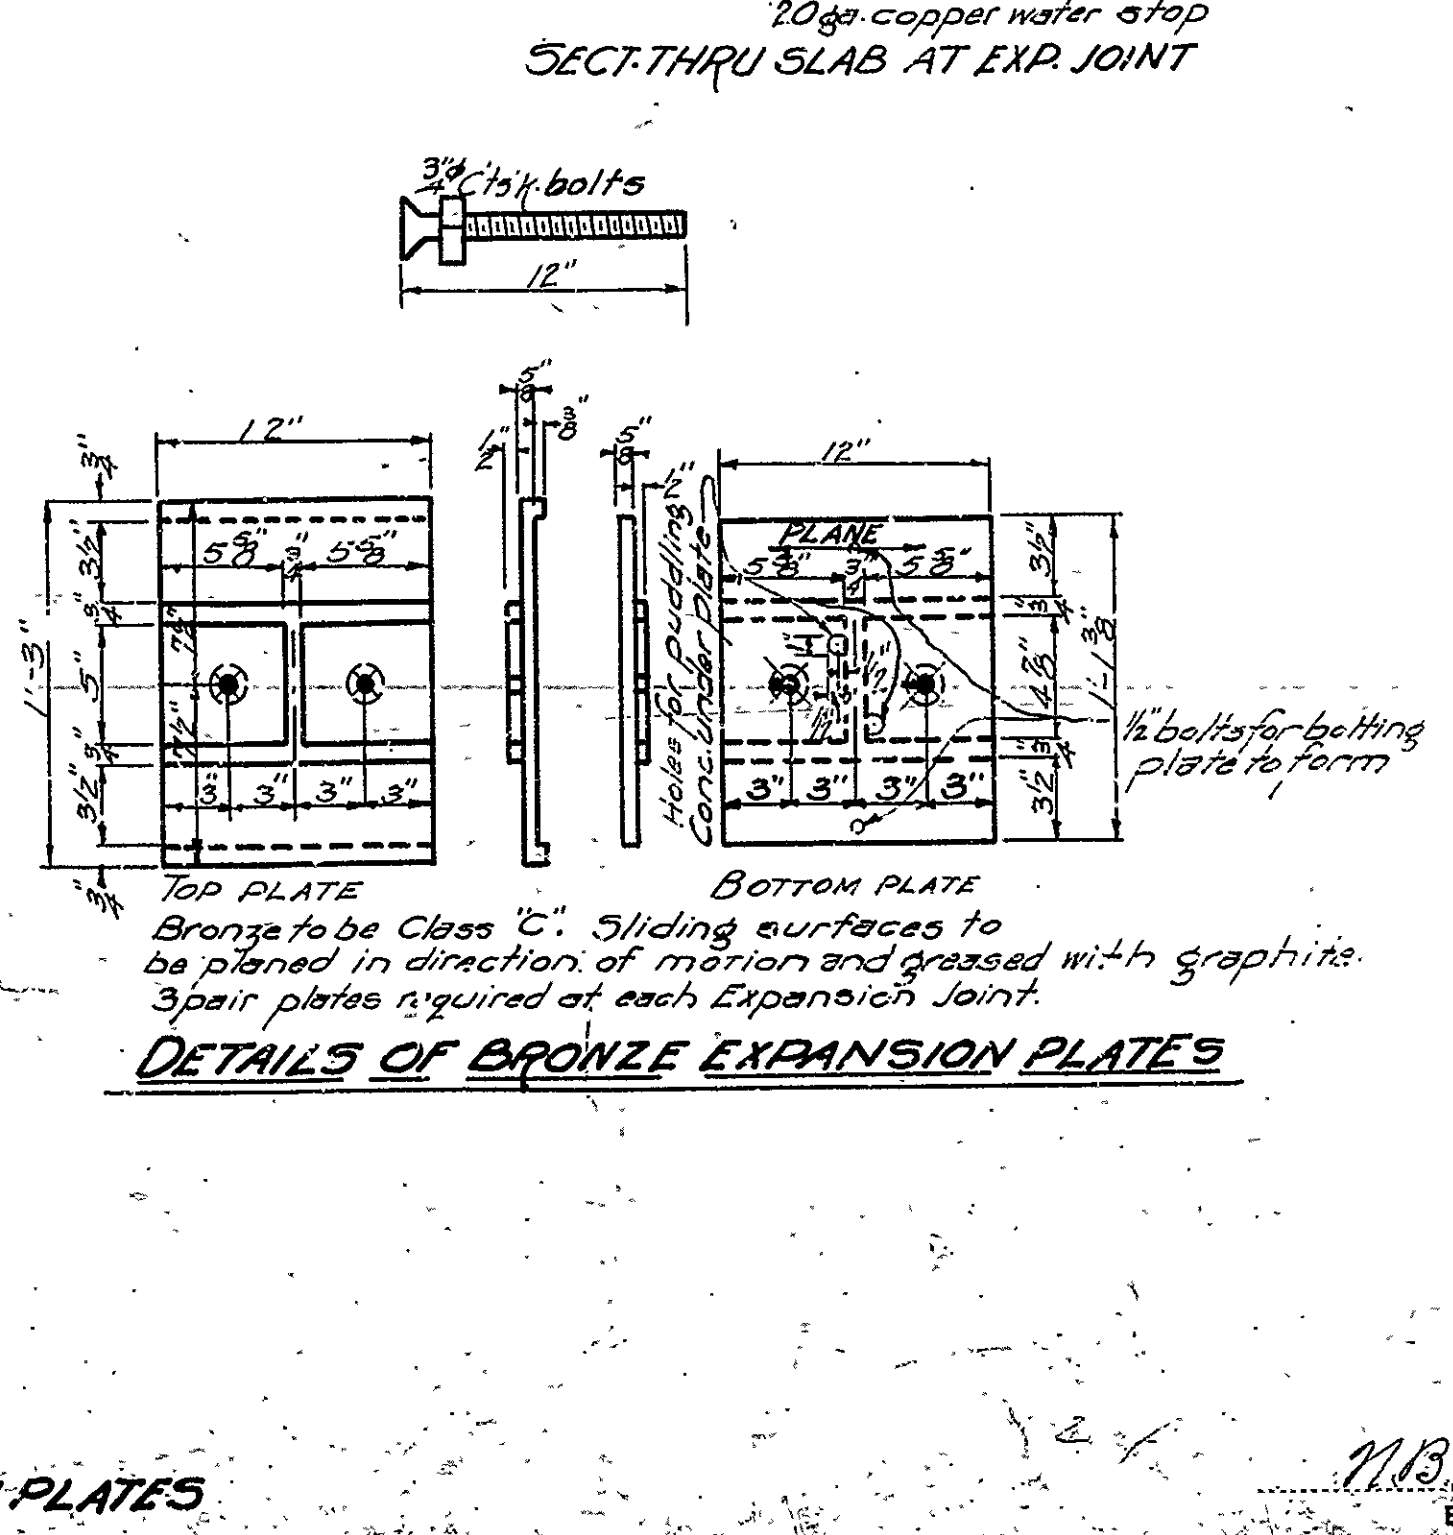 20 ga. copper water stop
SECT. THRU SLAB AT EXP. JOINT
3/4"φ C'ts'k. bolts
12"
5/8"
3/8"
1/2"
5/8"
1/2"
12"
3/4"
3 1/2"
3/4"
5"
3/4"
3 1/2"
3/4"
1'-3"
5 5/8" 3/4" 5 5/8"
7 1/2"
7 1/2"
3" 3" 3" 3"
Holes for puddling
Conc. under plate
12"
PLANE
5 5/8" 3/4" 5 5/8"
1 1/2"
1 1/2"
3" 3" 3" 3"
3 1/2"
3/4"
4 7/8"
3/4"
3 1/2"
1'-1 3/8"
1/2" bolts for bolting
plate to form
TOP PLATE
BOTTOM PLATE
Bronze to be Class "C". Sliding surfaces to
be planed in direction of motion and greased with graphite.
3 pair plates required at each Expansion Joint.
DETAILS OF BRONZE EXPANSION PLATES
PLATES
N.B.